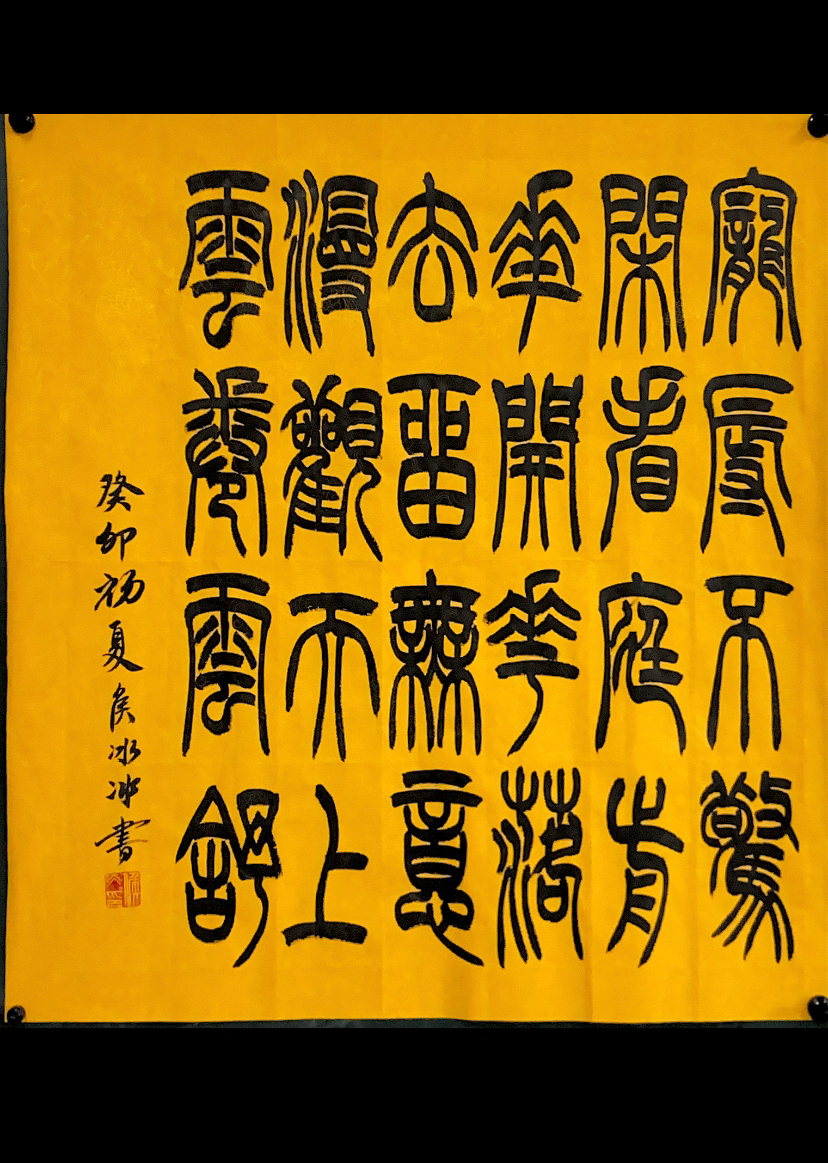 寵辱不驚
閑看庭前
華開華落
去留無意
漫觀天上
雲卷雲舒
癸卯初夏侯冰冰書